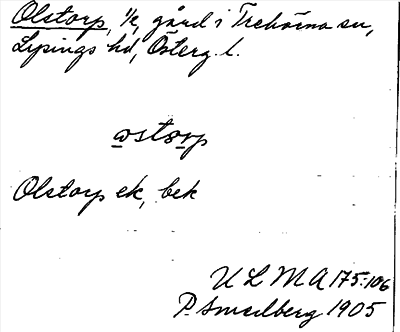 Olstorp, 1/2, gård i Trehörna sn,
Lysings hd, Österg. l.
ωstωrp
Olstorp ek, bek
U L M A 175:106
P. Smedberg 1905